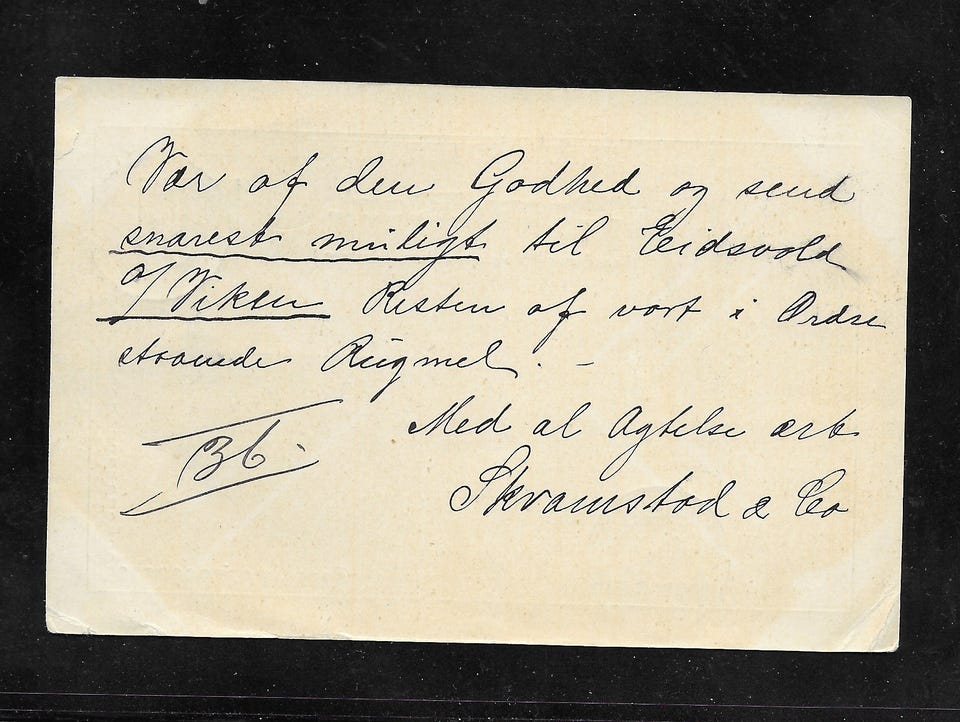 Vær af den Godhed og send
snarest muligt til Eidsvold
o/ Viken Resten af vort i Ordre
staaende Rugmel. -
Med al Agtelse ærb
Skramstad & Co
36.